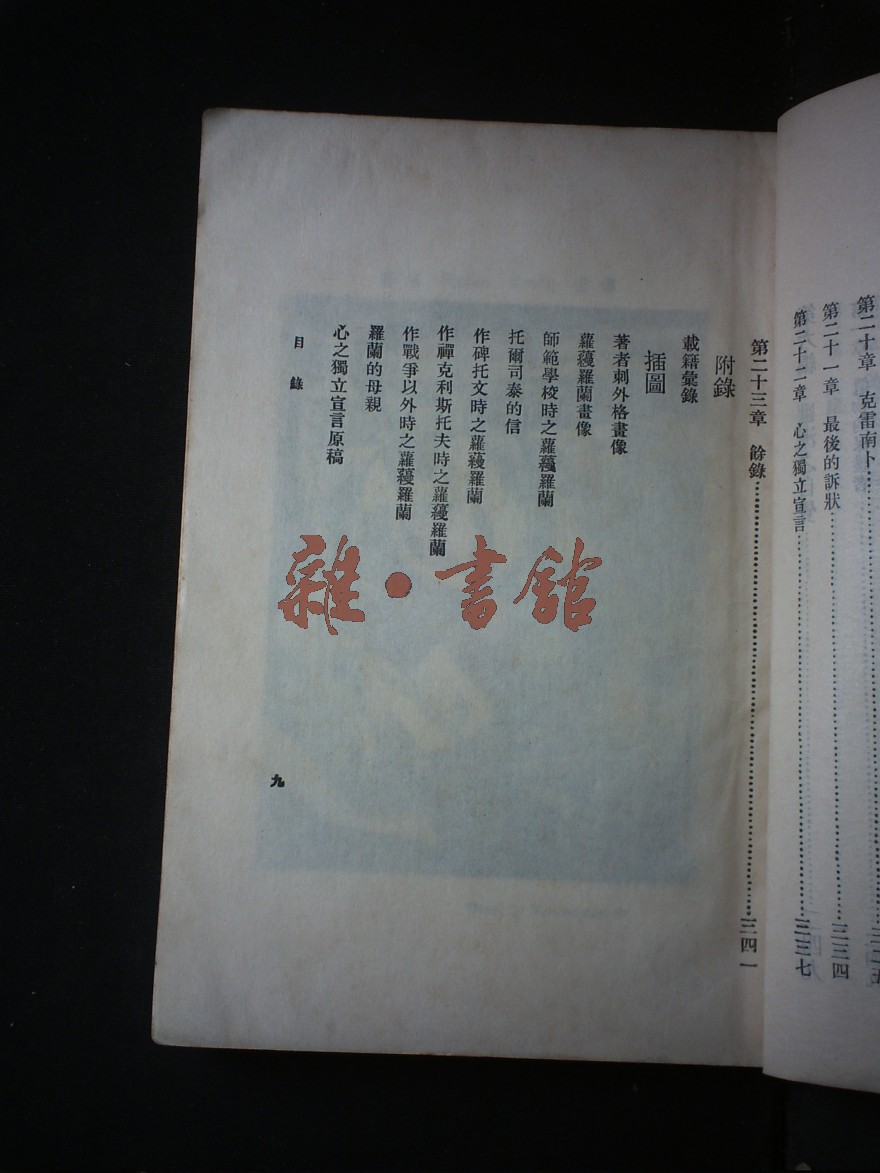 第二十章　克雷南卜
第二十一章　最後的訴狀……二三四
第二十二章　心之獨立宣言……二三七
第二十三章　餘錄……三四一
附錄
載籍彙錄
插圖
著者刺外格畫像
蘿蔓羅蘭畫像
師範學校時之蘿蔓羅蘭
托爾司泰的信
作碑托文時之蘿蔓羅蘭
作禪克利斯托夫時之蘿蔓羅蘭
作戰爭以外時之蘿蔓羅蘭
羅蘭的母親
心之獨立宣言原稿
目錄
九
雜·書館